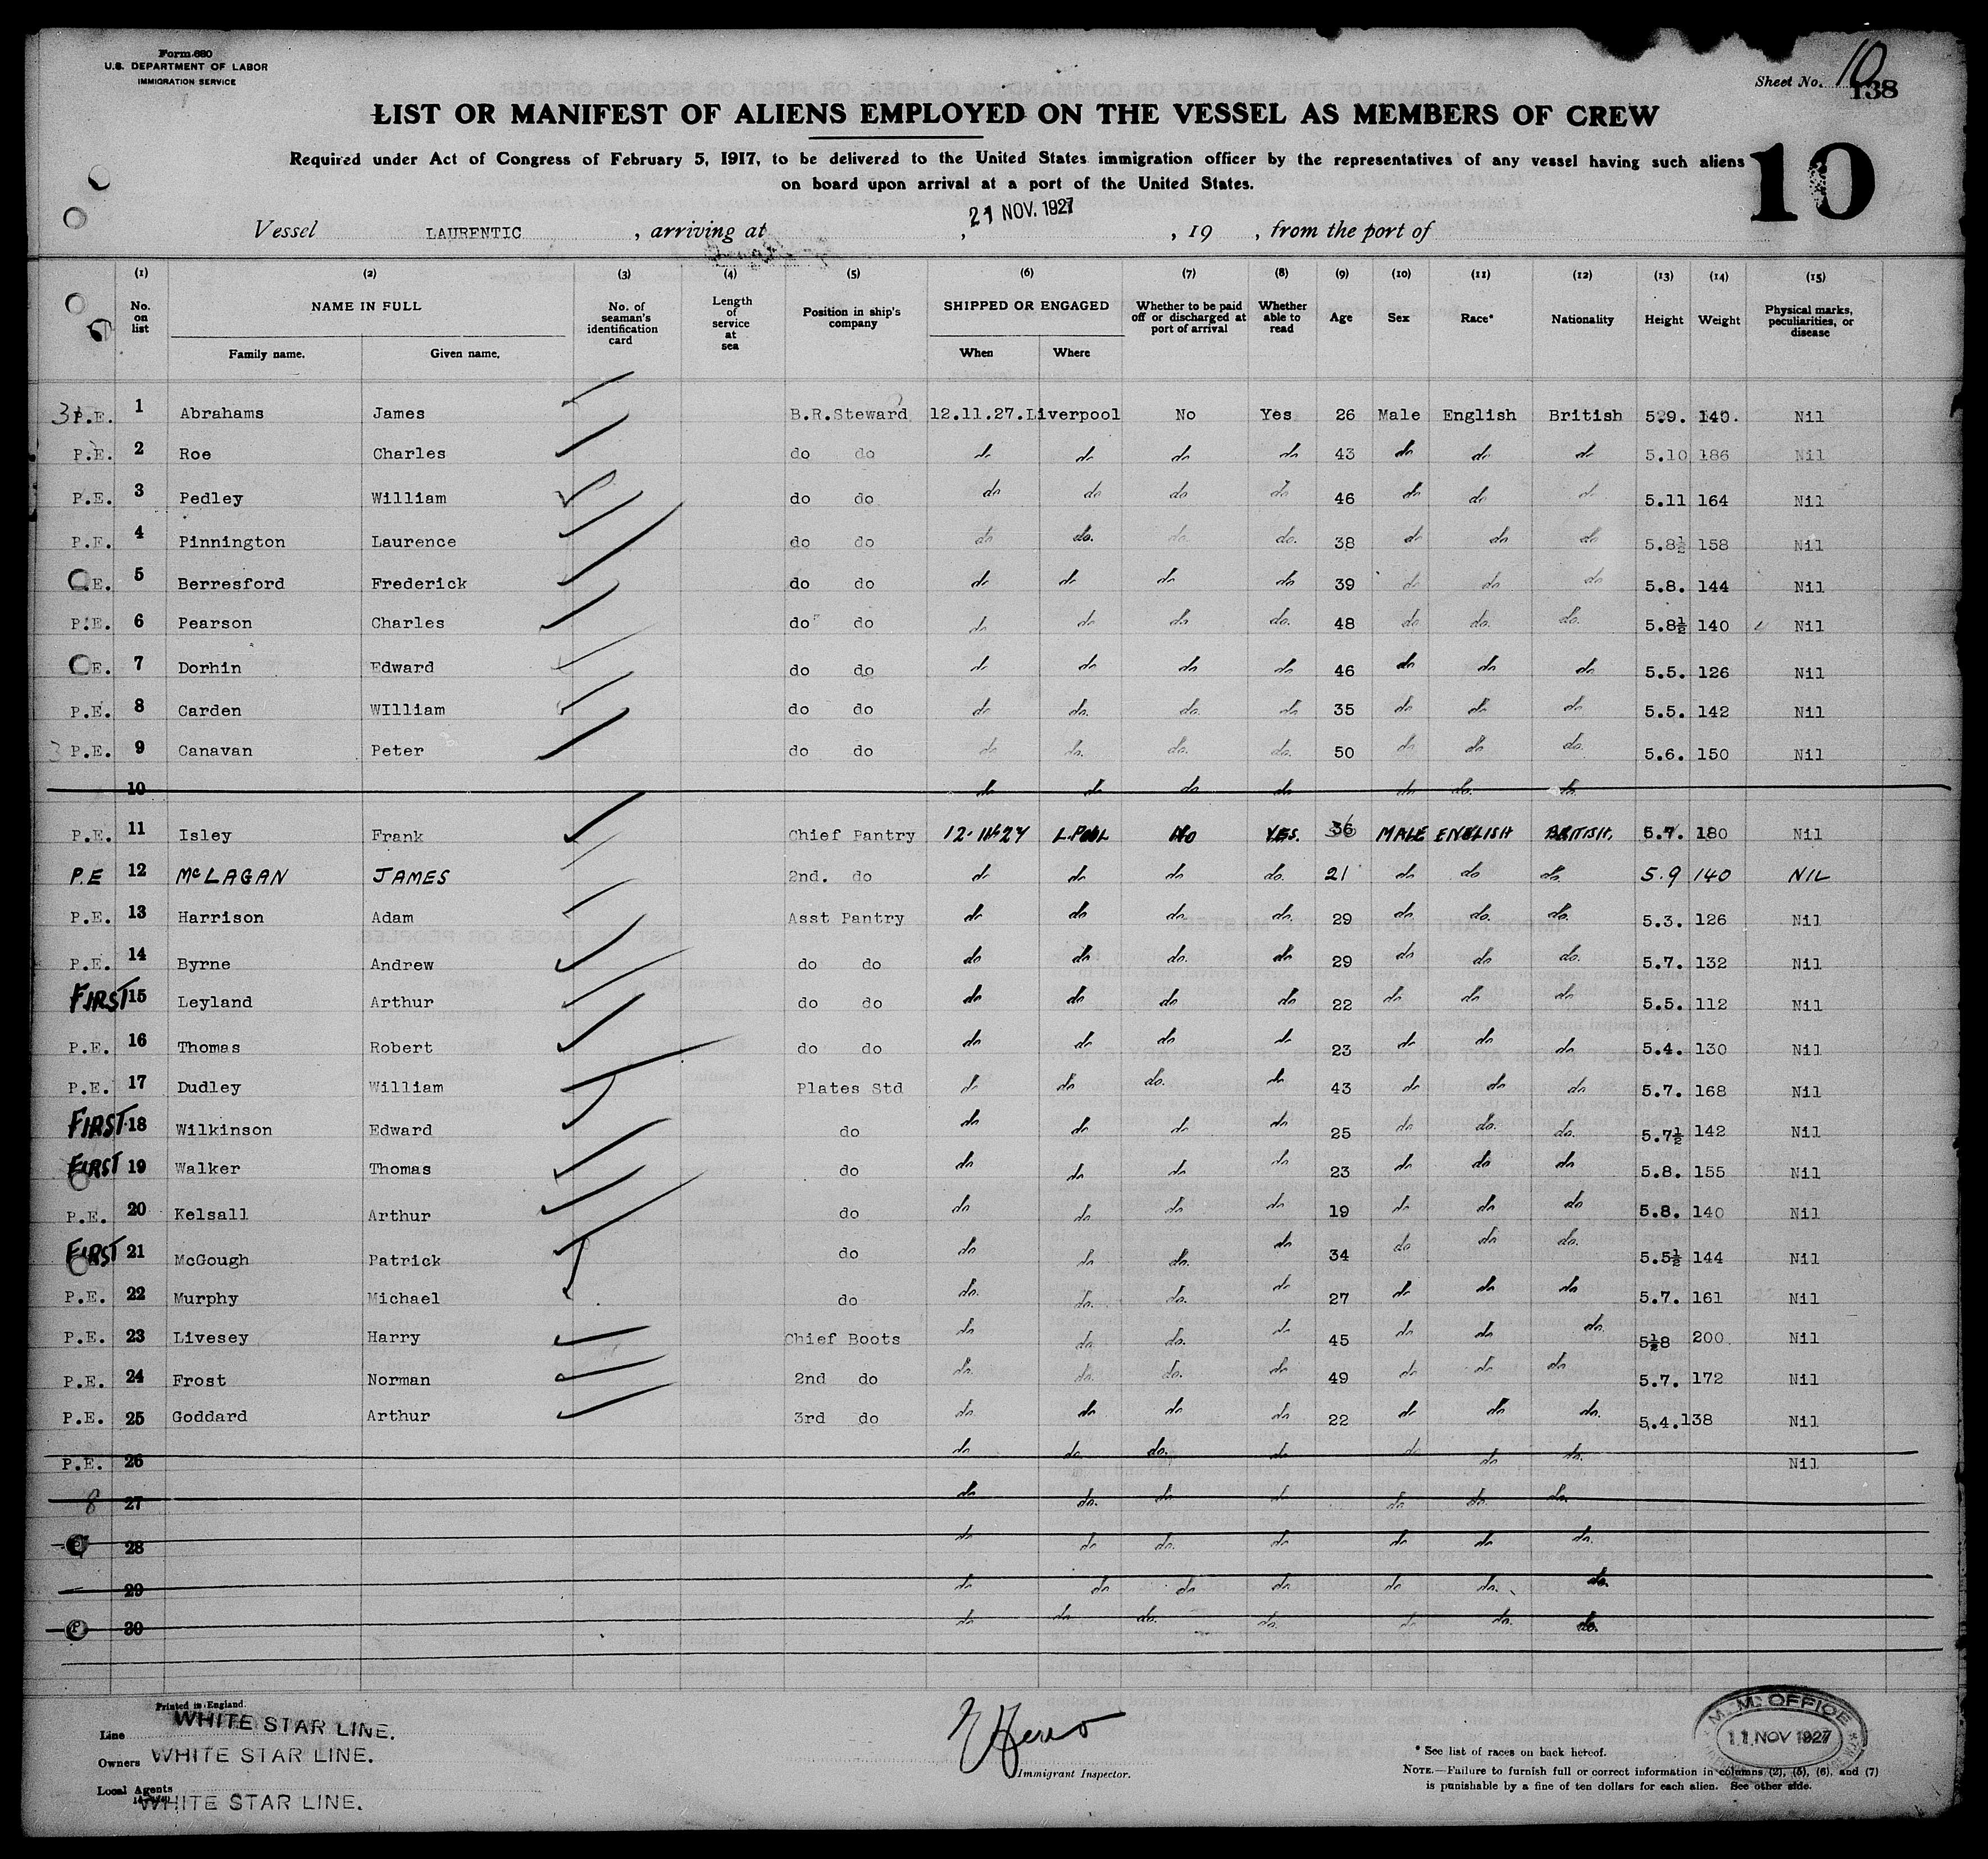 Form 680
U.S. DEPARTMENT OF LABOR
IMMIGRATION SERVICE
Sheet No. 10
138
LIST OR MANIFEST OF ALIENS EMPLOYED ON THE VESSEL AS MEMBERS OF CREW
Required under Act of Congress of February 5, 1917, to be delivered to the United States immigration officer by the representatives of any vessel having such aliens
on board upon arrival at a port of the United States.
10
21 NOV. 1927
Vessel LAURENTIC , arriving at , , 19 , from the port of
(1) (2) (3) (4) (5) (6) (7) (8) (9) (10) (11) (12) (13) (14) (15)
No. on list NAME IN FULL No. of seaman's identification card Length of service at sea Position in ship's company SHIPPED OR ENGAGED Whether to be paid off or discharged at port of arrival Whether able to read Age Sex Race* Nationality Height Weight Physical marks, peculiarities, or disease
Family name. Given name. When Where
P.E. 1 Abrahams James B.R.Steward 12.11.27. Liverpool No Yes 26 Male English British 5.9. 140. Nil
P.E. 2 Roe Charles do do do do do do 43 do do do 5.10 186 Nil
P.E. 3 Pedley William do do do do do do 46 do do do 5.11 164 Nil
P.E. 4 Pinnington Laurence do do do do. do do. 38 do do do 5.8½ 158 Nil
E. 5 Berresford Frederick do do do do do do 39 do do do 5.8. 144 Nil
P.E. 6 Pearson Charles do do do do do do. 48 do do. do. 5.8½ 140 Nil
E. 7 Dorhin Edward do do do do do do 46 do do do 5.5. 126 Nil
P.E. 8 Carden WIlliam do do do do. do. do 35 do do do 5.5. 142 Nil
3 P.E. 9 Canavan Peter do do do do. do. do. 50 do do do. 5.6. 150 Nil
10 do do do do do do. do.
P.E. 11 Isley Frank Chief Pantry 12.11.27 L.POOL NO YES. 36 MALE ENGLISH BRITISH. 5.7. 180 Nil
P.E 12 McLAGAN JAMES 2nd. do do do do do. 21 do do do. 5.9 140 NIL
P.E. 13 Harrison Adam Asst Pantry do do do. do. 29 do. do. do. 5.3. 126 Nil
P.E. 14 Byrne Andrew do do do do do. do 29 do do do. 5.7. 132 Nil
FIRST 15 Leyland Arthur do do do do do do 22 do do do 5.5. 112 Nil
P.E. 16 Thomas Robert do do do do do do 23 do do do 5.4. 130 Nil
P.E. 17 Dudley William Plates Std do do do. do 43 do do do 5.7. 168 Nil
FIRST 18 Wilkinson Edward do do do do do 25 do do. do. 5.7½ 142 Nil
FIRST 19 Walker Thomas do do do do do 23 do do do 5.8. 155 Nil
P.E. 20 Kelsall Arthur do do do do do 19 do do do 5.8. 140 Nil
FIRST 21 McGough Patrick do do do do. do 34 do do do. 5.5½ 144 Nil
P.E. 22 Murphy Michael do do. do. do. do 27 do do do 5.7. 161 Nil
P.E. 23 Livesey Harry Chief Boots do do. do. do 45 do do do. 5½8 200 Nil
P.E. 24 Frost Norman 2nd do do. do. do. do 49 do do do 5.7. 172 Nil
P.E. 25 Goddard Arthur 3rd do do. do do do 22 do do do. 5.4. 138 Nil
P.E. 26 do do do. do do do do. Nil
8 27 do do. do do do do do.
28 do do do. do do do do.
29 do do do do do do. do.
30 do do do. do. do do. do.
Printed in England.
Line WHITE STAR LINE.
Owners WHITE STAR LINE.
Local Agents WHITE STAR LINE.
Immigrant Inspector.
M. M. OFFICE
11 NOV 1927
* See list of races on back hereof.
NOTE.—Failure to furnish full or correct information in columns (2), (5), (6), and (7)
is punishable by a fine of ten dollars for each alien. See other side.